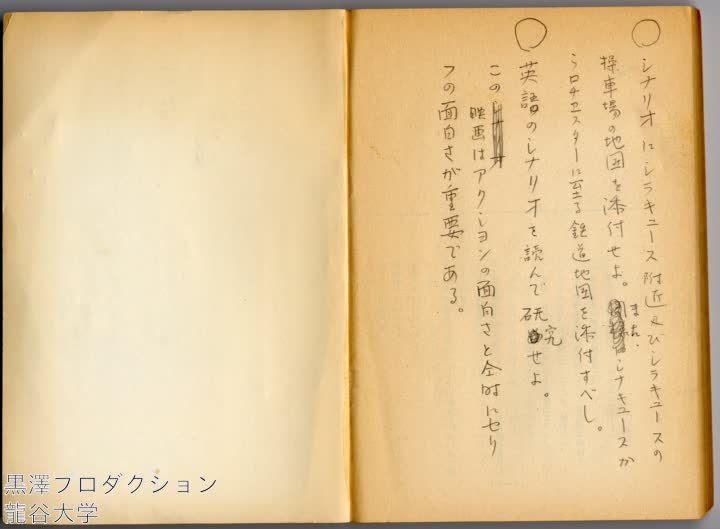 ○
シナリオにシラキュース附近及びシラキュースの
操車場の地図を添付せよ。また、シナキュースか
らロチェスターに至る鉄道地図を添付すべし。
○
英語のシナリオを読んで研究せよ。
このシナリオ映画はアクションの面白さと仝時にセリ
フの面白さが重要である。
黒澤プロダクション
龍谷大学